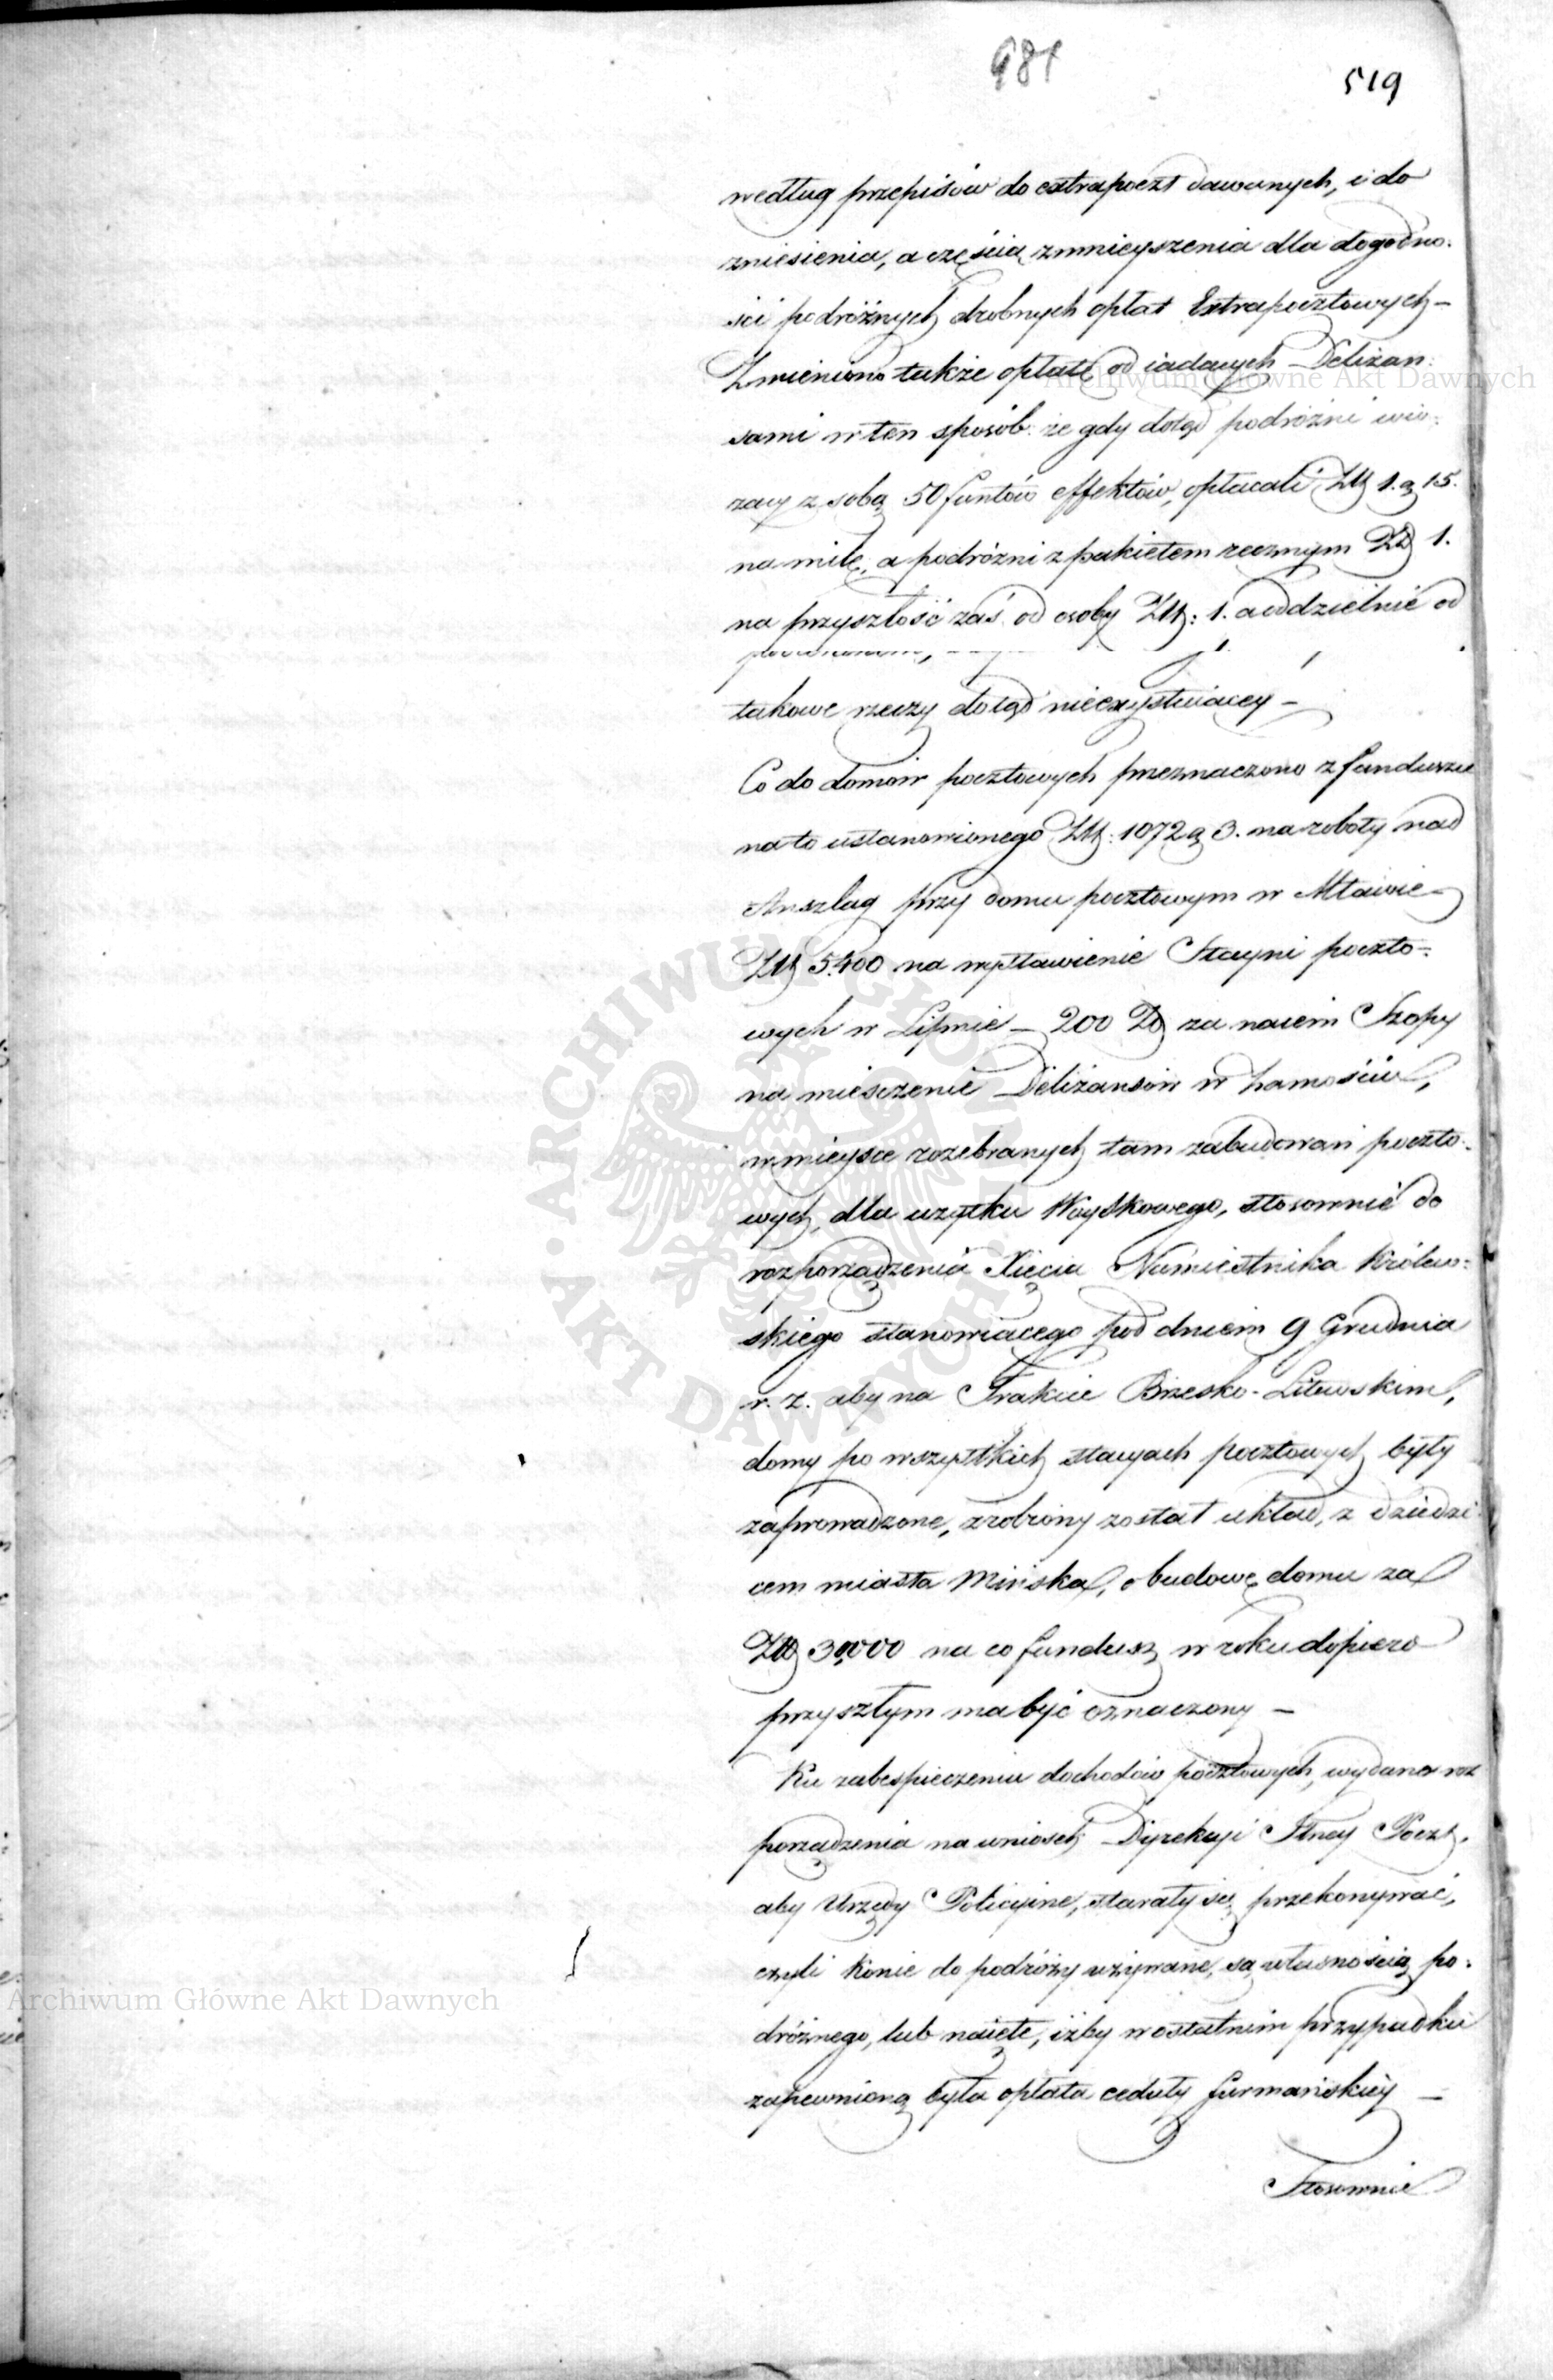 981
519
według przepisów do extrapoczt dawanych, i do
zniesienia, a częścią zmnieyszenia dla dogodno-
ści podróżnych drobnych opłat Extrapocztowych –
Zmieniono także opłatę od iadących Deliżan-
sami w ten sposób że gdy dotąd podróżni wio-
zący z sobą 50 funtów effektów, opłacali Złł 1. g 15.
na milę, a podróżni z pakietem ręcznym Zł 1.
na przyszłość zaś od osoby Złł: 1. a oddzielnie od
takowe rzeczy dotąd nieexystuiącey –
Co do domów pocztowych przeznaczono z funduszu
na to ustanowionego Złł: 1072 g 3. na roboty nad
Anszlag przy domu pocztowym w Mławie
Złł 5,400 na wystawienie Stayni poczto-
wych w Lipnie – 200 Zł za naiem Szopy
na miesczenie Deliżansów w Zamościu,
w mieysce rozebranych tam zabudowań poczto-
wych, dla użytku Woyskowego, stosownie do
rozporządzenia Xięcia Namiestnika Królew-
skiego stanowiącego pod dniem 9 Grudnia
r. z. aby na Trakcie Brzesko-Litewskim,
domy po wszystkich stacyach pocztowych były
zaprowadzone, zrobiony został układ, z dziedzi-
cem miasta Mińska, o budowę domu za
Złł 30,000 na co fundusz w roku dopiero
przyszłym ma być oznaczony –
Ku zabespieczeniu dochodów pocztowych, wydano roz
porządzenia na wniosek Dyrekcyi Poczt.
aby Urzędy Policyine, starały się przekonywać,
czyli konie do podróży używane, są własnością po-
dróżnego, lub naięte, iżby w ostatnim przypadku
zapewnioną była opłata ceduły furmańskiey –
Stosownie
Archiwum Główne Akt Dawnych
Archiwum Główne Akt Dawnych
ARCHIWUM GŁÓWNE AKT DAWNYCH